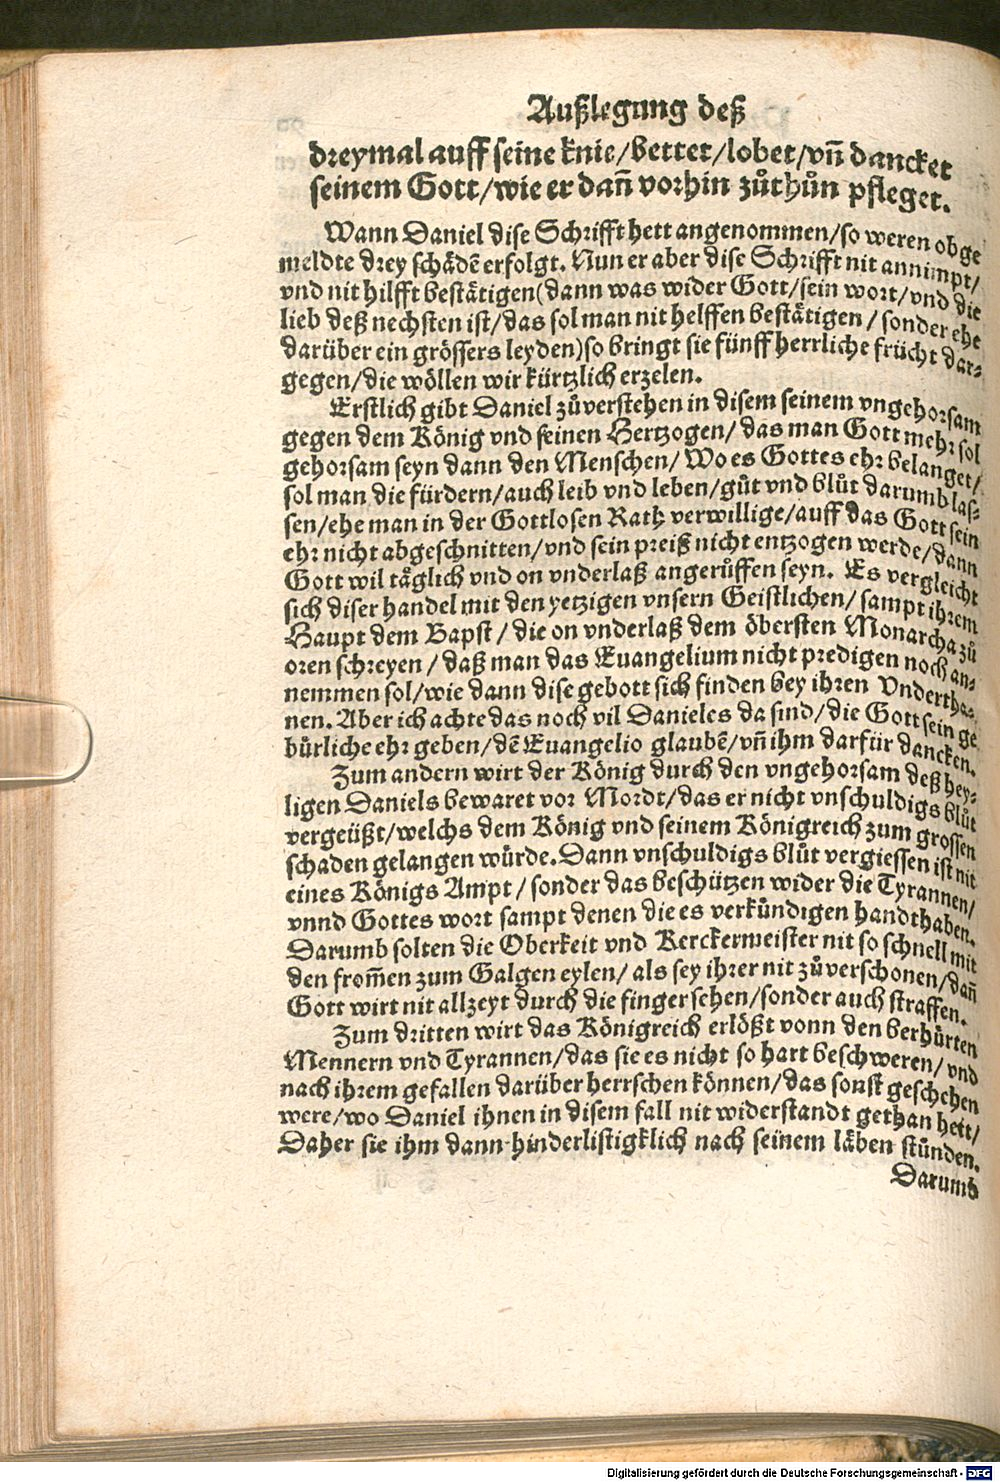 Außlegung deß
dreymal auff seine knie/bettet/lobet/vñ dancket
seinem Gott/wie er dañ vorhin zůthůn pfleget.
Wann Daniel dise Schrifft hett angenommen/so weren obge
meldte drey schädẽ erfolgt. Nun er aber dise Schrifft nit annimpt/
vnd nit hilfft bestätigen(dann was wider Gott/sein wort/vnd die
lieb deß nechsten ist/das sol man nit helffen bestätigen/sonder ehe
darüber ein grössers leyden)so bringt sie fünff herrliche frücht dar⸗
gegen/die wöllen wir kürtzlich erzelen.
Erstlich gibt Daniel zůverstehen in disem seinem vngehorsam
gegen dem König vnd seinen Hertzogen/das man Gott mehr sol
gehorsam seyn dann den Menschen/Wo es Gottes ehr belanget/
sol man die fürdern/auch leib vnd leben/gůt vnd blůt darumb las⸗
sen/ehe man in der Gottlosen Rath verwillige/auff das Gott sein
ehr nicht abgeschnitten/vnd sein preiß nicht entzogen werde/dann
Gott wil täglich vnd on vnderlaß angerůffen seyn. Es vergleicht
sich diser handel mit den yetzigen vnsern Geistlichen/sampt ihrem
Haupt dem Bapst/die on vnderlaß dem öbersten Monarcha zů
oren schreyen/daß man das Euangelium nicht predigen noch an⸗
nemmen sol/wie dann dise gebott sich finden bey ihren Vndertha⸗
nen. Aber ich achte das noch vil Danieles da sind/die Gott sein ge
bürliche ehr geben/dẽ Euangelio glaubẽ/vñ ihm darfür dancken.
Zum andern wirt der König durch den vngehorsam deß hey⸗
ligen Daniels bewaret vor Mordt/das er nicht vnschuldigs blůt
vergeüßt/welchs dem König vnd seinem Königreich zum grossen
schaden gelangen würde. Dann vnschuldigs blůt vergiessen ist nit
eines Königs Ampt/sonder das beschützen wider die Tyrannen/
vnnd Gottes wort sampt denen die es verkündigen handthaben.
Darumb solten die Oberkeit vnd Kerckermeister nit so schnell mit
den from̃en zum Galgen eylen/als sey ihrer nit zůverschonen/dañ
Gott wirt nit allzeyt durch die finger sehen/sonder auch straffen.
Zum dritten wirt das Königreich erlößt vonn den berhürten
Mennern vnd Tyrannen/das sie es nicht so hart beschweren/vnd
nach ihrem gefallen darüber herrschen können/das sonst geschehen
were/wo Daniel ihnen in disem fall nit widerstandt gethan hett/
Daher sie ihm dann hinderlistigklich nach seinem läben stůnden.
Darumb
Digitalisierung gefördert durch die Deutsche Forschungsgemeinschaft - DFG